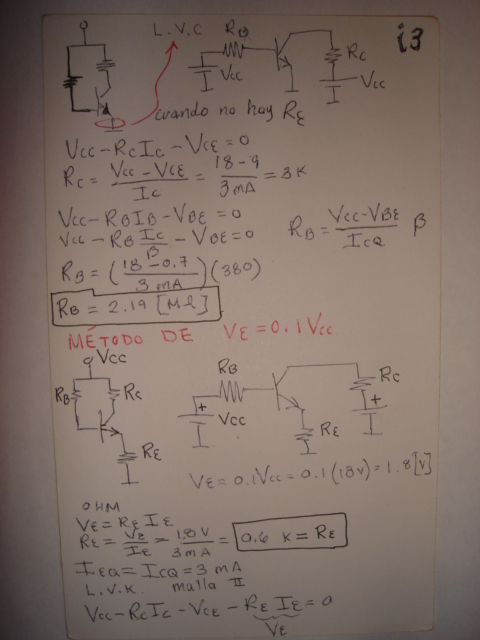 i3
L.V.C
RB
VCC
RC
VCC
cuando no hay RE
VCC - RC IC - VCE = 0
RC = (VCC - VCE)/IC = (18 - 9)/3 mA = 3K
VCC - RB IB - VBE = 0
VCC - RB IC/β - VBE = 0
RB = (VCC - VBE)/ICQ β
RB = ((18 - 0.7)/3 mA)(380)
RB = 2.19 [MΩ]
MÉTODO DE VE = 0.1 VCC
VCC
RB
RC
RE
RB
+
VCC
RC
+
RE
VE = 0.1 VCC = 0.1 (18V) = 1.8 [V]
OHM
VE = RE IE
RE = VE/IE = 1.8 V/3 mA = 0.6 K = RE
IEQ = ICQ = 3 mA
L.V.K. malla II
VCC - RC IC - VCE - RE IE = 0
VE